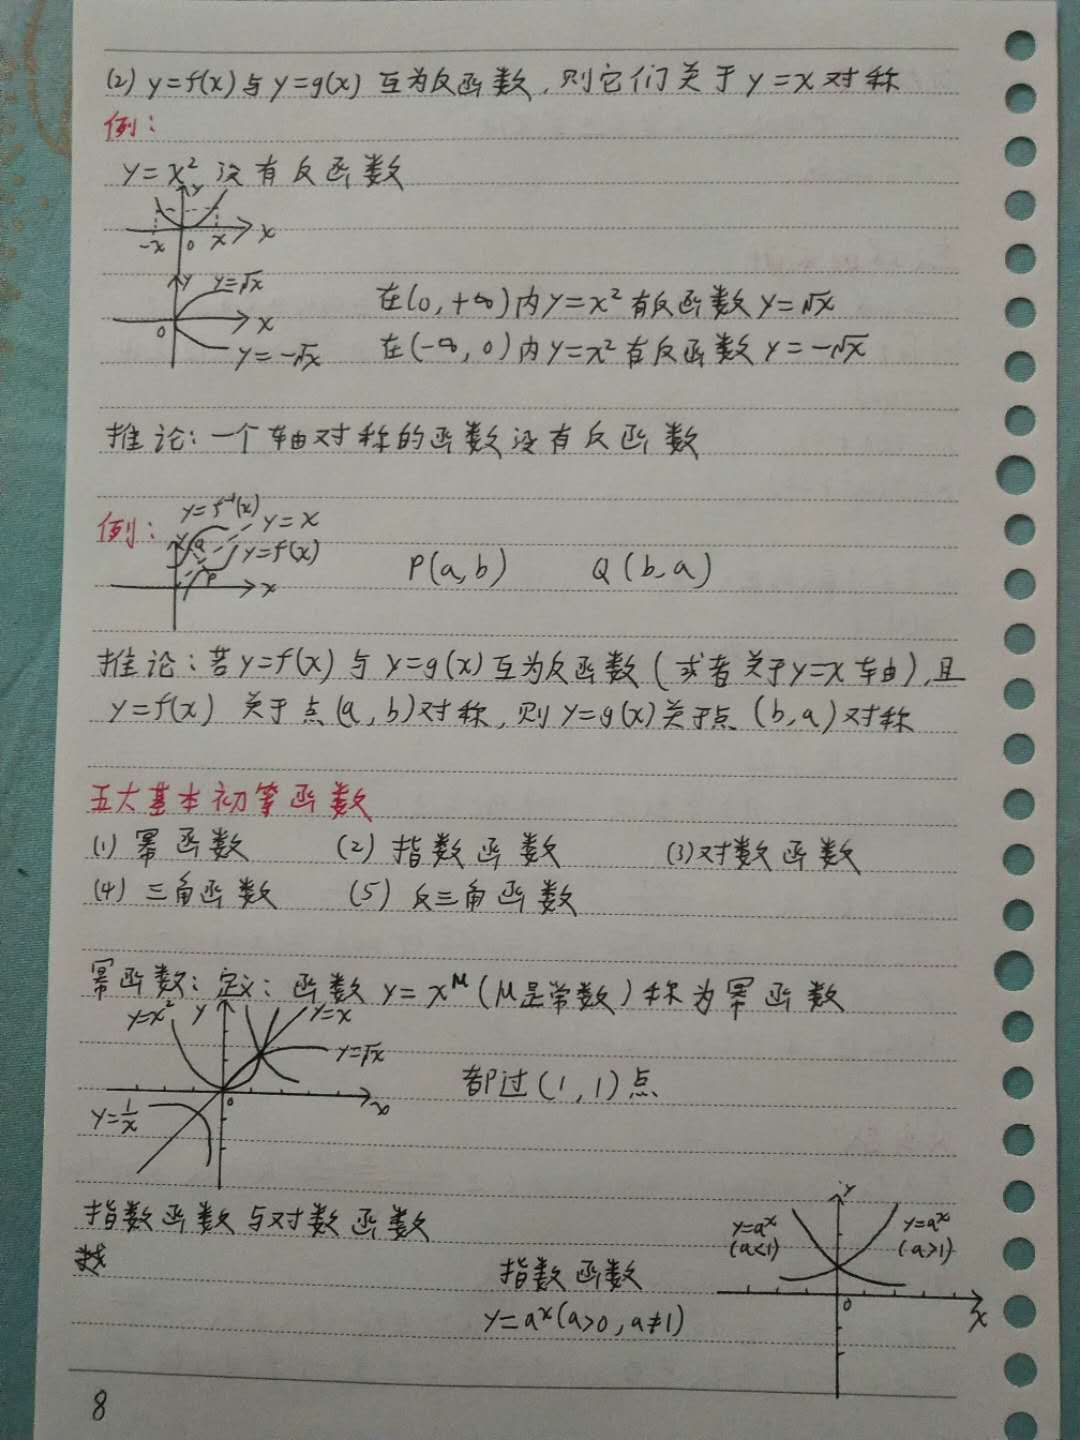 (2) y=f(x)与y=g(x) 互为反函数,则它们关于y=x对称
例:
y=x² 没有反函数
y
-x 0 x x
y y=√x
在(0,+∞)内y=x²有反函数y=√x
0 x
y=-√x
在(-∞,0)内y=x²有反函数y=-√x
推论:一个轴对称的函数没有反函数
y=f⁻¹(x)
例: y Q y=x
y=f(x)
P x
P(a,b) Q(b,a)
推论:若y=f(x)与y=g(x)互为反函数(或者关于y=x轴由),且
y=f(x) 关于点(a,b)对称,则y=g(x)关于点(b,a)对称
五大基本初等函数
(1) 幂函数 (2) 指数函数 (3)对数函数
(4) 三角函数 (5) 反三角函数
幂函数:定义:函数y=x^μ(μ是常数)称为幂函数
y=x² y y=x
y=√x
都过(1,1)点
0 x
y=1/x
指数函数与对数函数
y
y=aˣ y=aˣ
(a<1) (a>1)
指数函数
y=aˣ(a>0,a≠1)
0 x
8